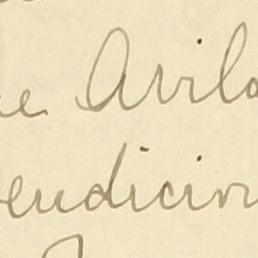 e Avila
endicion